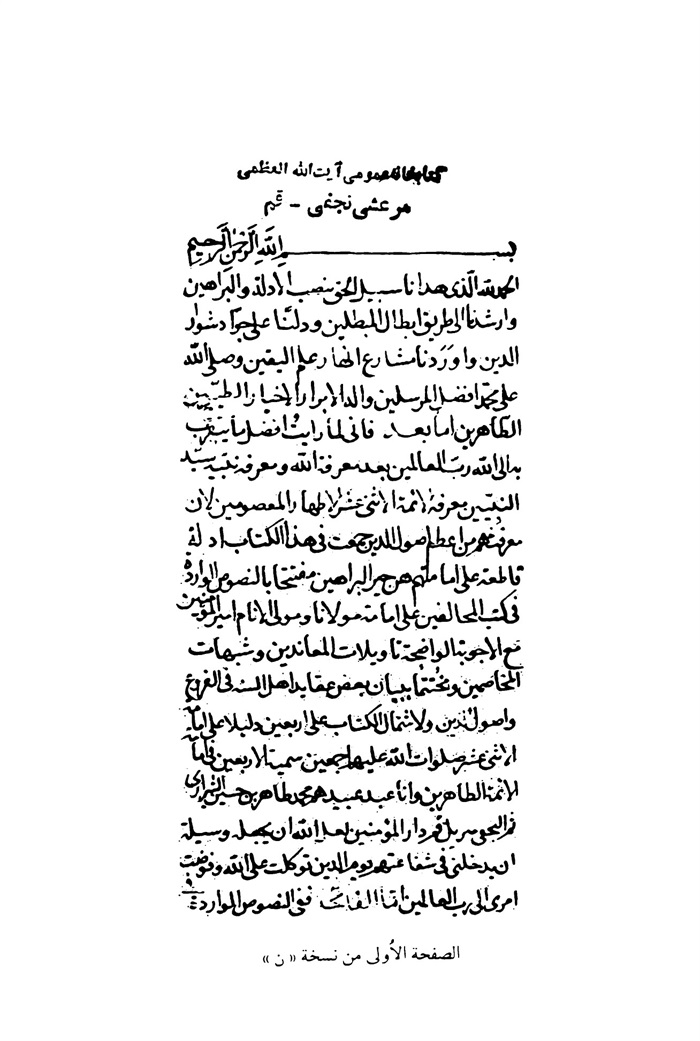 كتابخانه عمومى آيت الله العظمى
مرعشى نجفى - قم
بسم الله الرحمن الرحيم
الحمد لله الذى هدانا سبيل الحق بنصب الادلة والبراهين
وارشدنا الى طريق ابطال المبطلين ودلنا على جواد شوارع
الدين واوردنا مشارع انهار علم اليقين وصلى الله
على محمد افضل المرسلين واله الابرار الاخيار الطيبين
الطاهرين اما بعد فانى لما رايت افضل ما يتقرب
به الى الله رب العالمين بعد معرفة الله ومعرفة نبيه سيد
النبيين معرفة الائمة الاثنى عشر الاطهار المعصومين لان
معرفتهم من اعظم اصول الدين جمعت فى هذا الكتاب ادلة
قاطعة على امامتهم هن خير البراهين مفتتحا بالنصوص الواردة
فى كتب المخالفين على امامة مولانا ومولى الانام امير المؤمنين
مع الاجوبة الواضحة تاويلات المعاندين وشبهات
المخاصمين ومختتما ببيان بعض عقايد اهل السنة فى الفروع
واصول الدين ولاشتمال الكتاب على اربعين دليلا على امامة
الاثنى عشر صلوات الله عليهم اجمعين سميته الاربعين فى امامة
الائمة الطاهرين وانا عبد عبيدهم محمد طاهر بن حسين الشيرازى
ثم النجفى نزيل قم دار المؤمنين لعل الله ان يجعله وسيلة
ان يدخلنى فى شفاعتهم يوم الدين توكلت على الله وفوضت
امرى الى رب العالمين اما الفاتحة ففى النصوص الواردة
الصفحة الأولى من نسخة « ن »